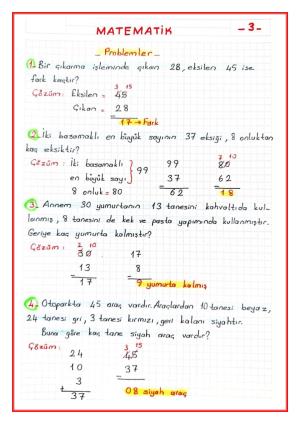 MATEMATİK
- 3 -
- Problemler -
1. Bir çıkarma işleminde çıkan 28, eksilen 45 ise
fark kaçtır?
3 15
Çözüm: Eksilen = 45
Çıkan = 28
17 → Fark
2. İki basamaklı en büyük sayının 37 eksiği, 8 onluktan
kaç eksiktir?
Çözüm: İki basamaklı
en büyük sayı } 99
8 onluk = 80
99
37
62
7 10
80
62
18
3. Annem 30 yumurtanın 13 tanesini kahvaltıda kul-
lanmış, 8 tanesini de kek ve pasta yapımında kullanmıştır.
Geriye kaç yumurta kalmıştır?
Çözüm:
2 10
30
13
17
17
8
9 yumurta kalmış
4. Otoparkta 45 araç vardır. Araçlardan 10 tanesi beyaz,
24 tanesi gri, 3 tanesi kırmızı, geri kalanı siyahtır.
Buna göre kaç tane siyah araç vardır?
Çözüm:
24
10
3
+
37
3 15
45
37
08 siyah araç